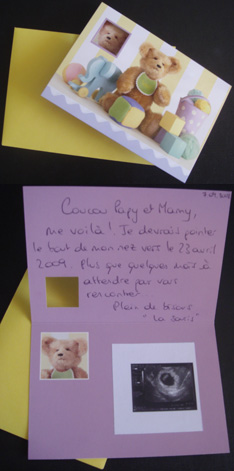 Coucou Papy et Mamy,
me voilà ! Je devrais pointer
le bout de mon nez vers le 23 avril
2009. Plus que quelques mois à
attendre pour vous
rencontrer
Plein de bisous